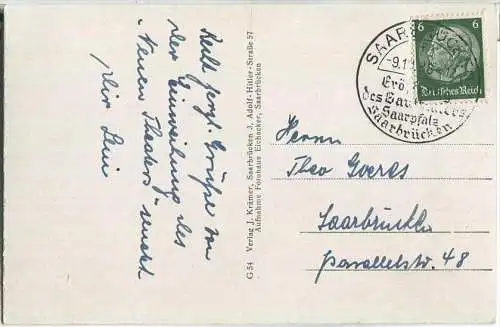 Recht herzl. Grüße von
der Einweihung des
"Neuen Theaters" sendet
Dir
G 54 Verlag J. Krämer, Saarbrücken 3, Adolf-Hitler-Straße 57
Aufnahme Fotohaus Eichacker, Saarbrücken
SAARBRÜCKEN
-9.1
Erö
des Gautheaters
Saarpfalz
Saarbrücken
6 6
Deutsches Reich
Herrn
Theo Goeres
Saarbrücken
Parallelstr. 48